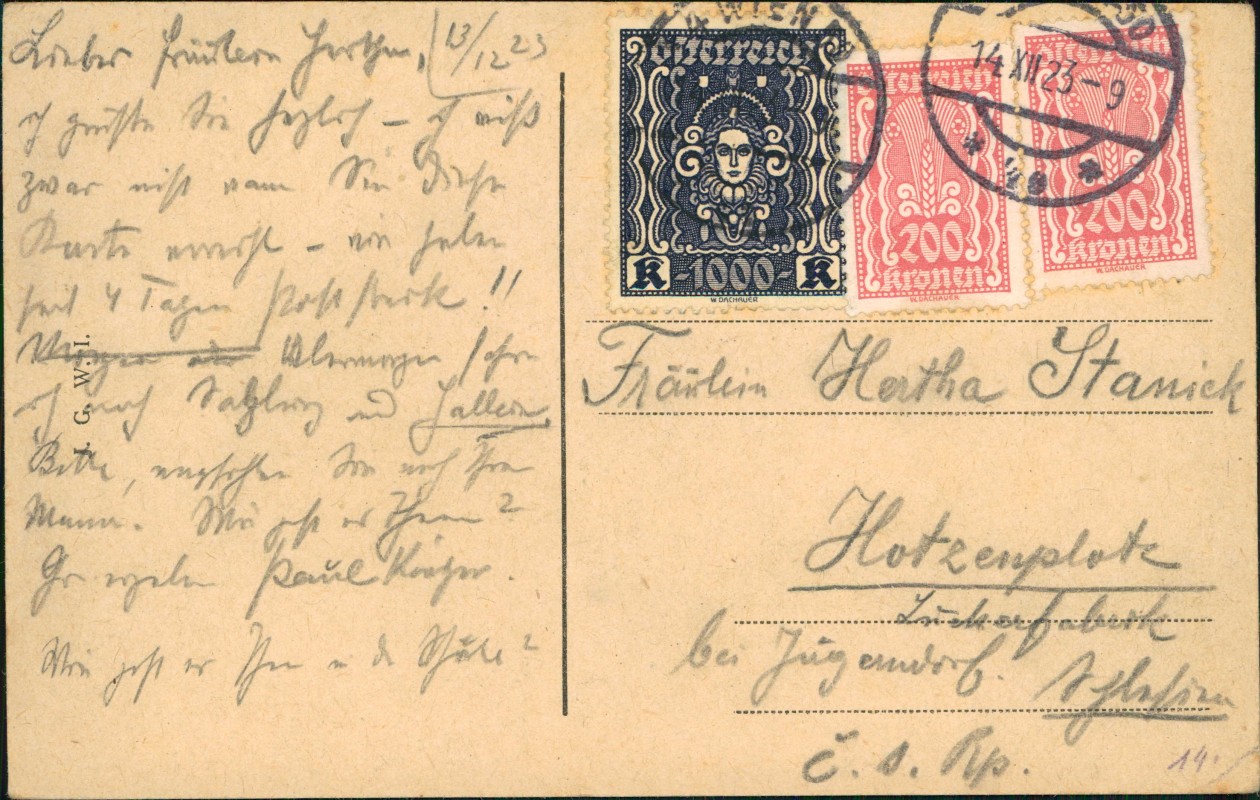 Liebes Fräulein Hertha, 13/12 23
ich grüße Sie herzlich – ich weiß
zwar nicht wann Sie diese
Karte erreicht – wir haben
seit 4 Tagen Poststreik!!
Morgen oder Übermorgen fahre
ich nach Salzburg und Hallein
Bitte, empfehlen Sie mich Ihrer
Mama. Wie geht es Ihnen?
Ihr ergebener Paul
Wie geht es Ihnen in der Schule?
J. G. W. I.
WIEN
14 XII 23 - 9
* *
Österreich
K -1000- K
W. DACHAUER
Österreich
200
kronen
W. DACHAUER
Österreich
200
kronen
W. DACHAUER
Fräulein Hertha Stanick
Hotzenplotz
Zuckerfabrik
bei Jägerndorf.
Schlesien
č. s. Rp.
14.